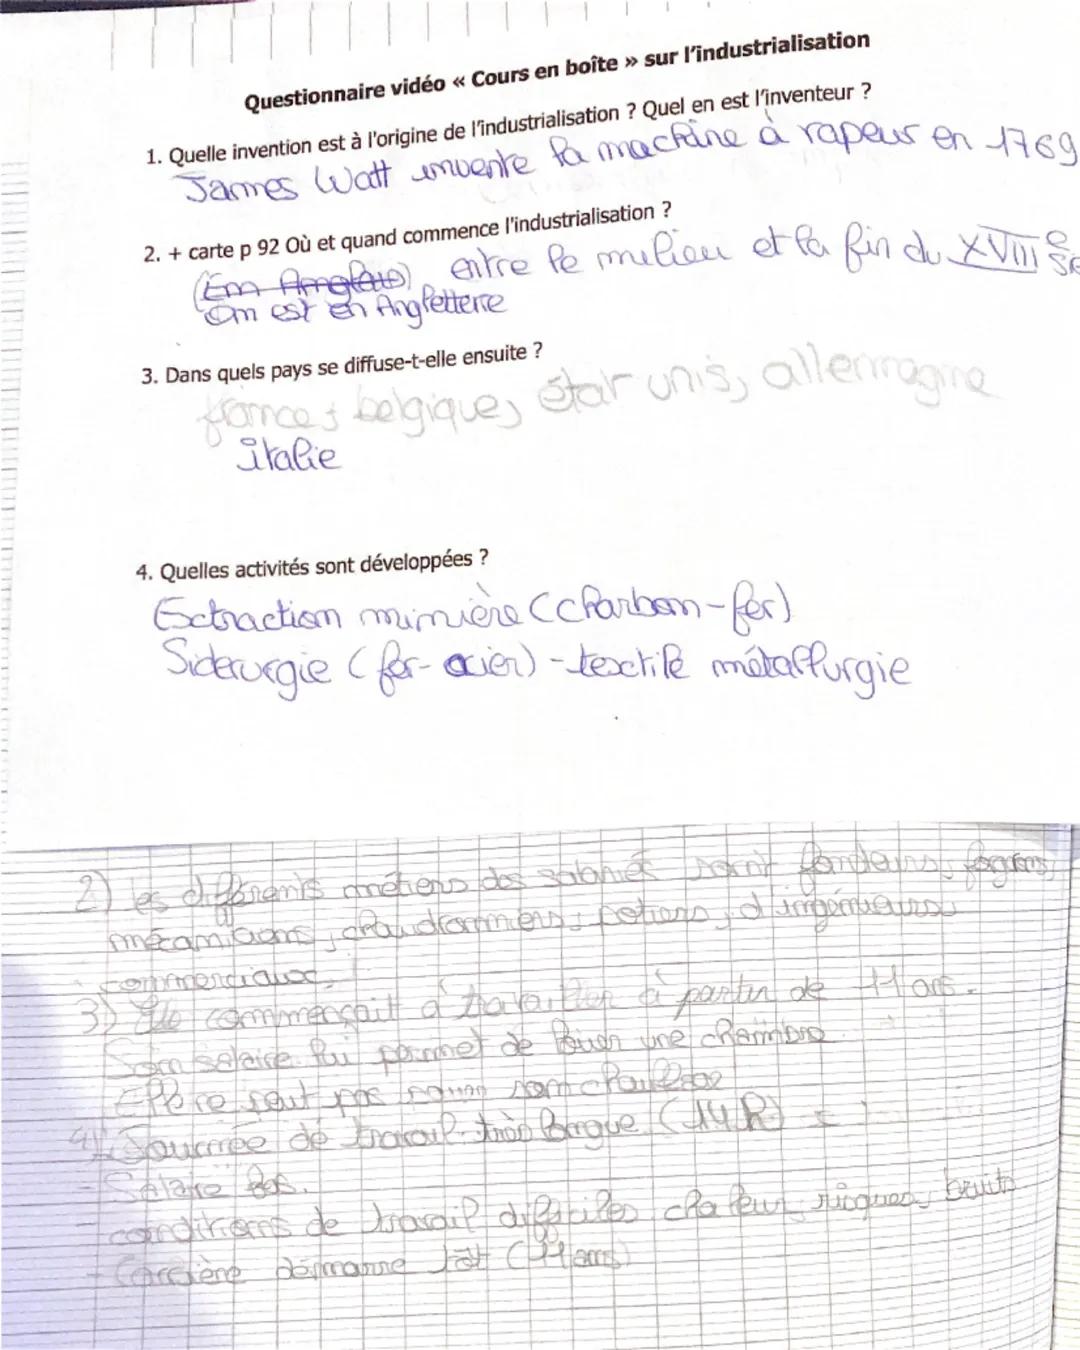 Questionnaire vidéo « Cours en boîte » sur l'industrialisation
1. Quelle invention est à l'origine de l'industrialisation ? Quel en est l'inventeur ?
James Watt invente la machine à rapeur en 1769
2. + carte p 92 Où et quand commence l'industrialisation ?
(Em Anglais) entre le milieu et la fin du XVIIIe
On est en Angleterre
3. Dans quels pays se diffuse-t-elle ensuite ?
france, belgique, étar unis, allemagne
italie
4. Quelles activités sont développées ?
Extraction minière (charbon-fer)
Siderurgie (fer-acier) - textile métallurgie
2) les différents métiers des salariés sont fondeurs,
mécaniciens, chaudronniers, potiers, d'ingénieurs
commerciaux.
3) commençait à travailler à partir de 11 ans.
Son salaire lui permet de louer une chambre
Elle ne peut pas
4) Journée de travail très longue (14 R)
- Salaire bas.
- conditions de travail difficiles chaleur, risques, bruits
- Carrière démarre tôt (11 ans)